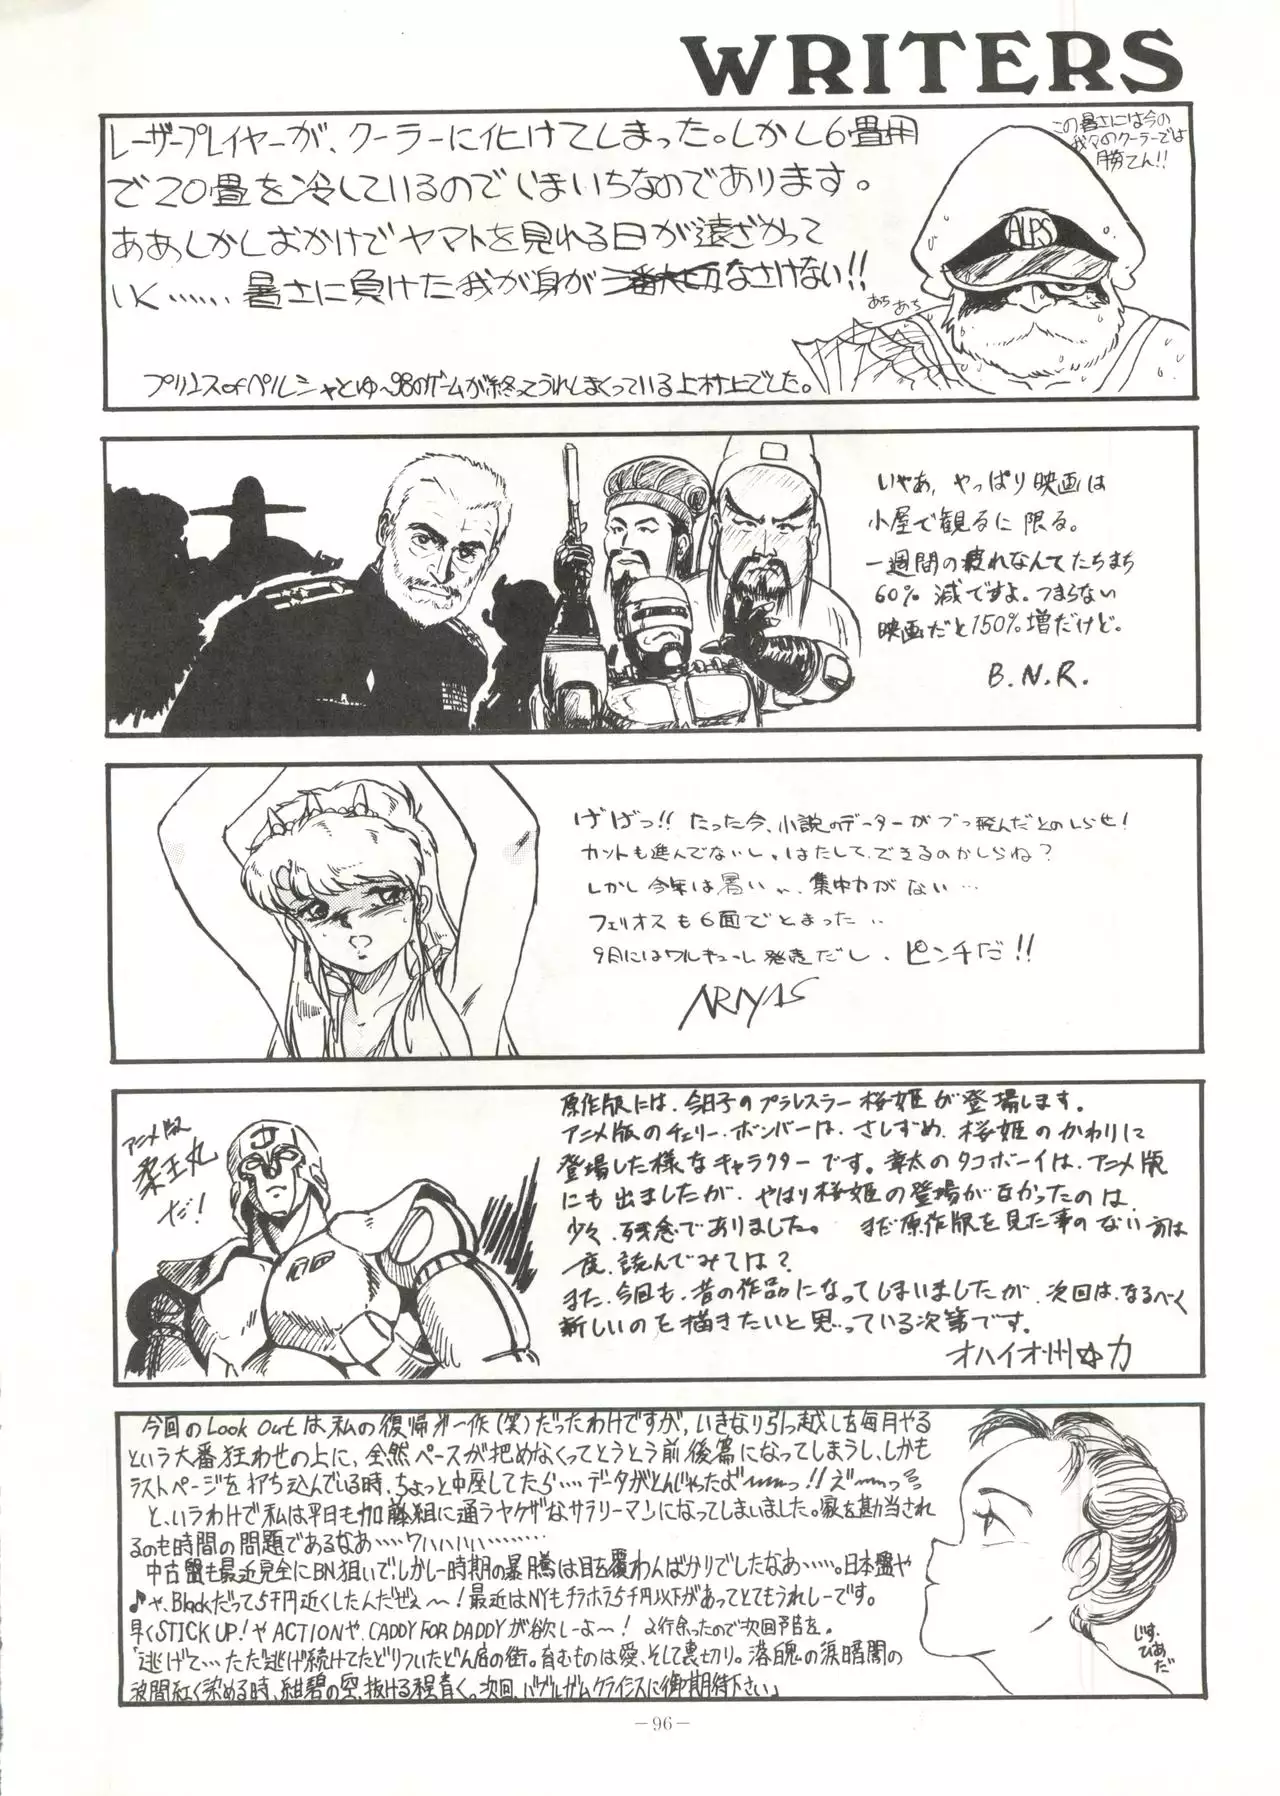 WRITERS
レーザープレイヤーが、クーラーに化けてしまった。しかし6畳用
で20畳を冷しているのでいまいちなのであります。
ああしかしおかげでヤマトを見れる日が遠ざかって
いく……暑さに負けた我が身が一番大切なさけない!!
プリンスofペルシャとゆ〜98のゲームが終ってうれしまくっている上村上でした。
この暑さには今の
我々のクーラーでは
勝てん!!
ALPS
あち あち
いやあ、やっぱり映画は
小屋で観るに限る。
一週間の疲れなんてたちまち
60%減ですよ。つまらない
映画だと150%増だけど。
B.N.R.
げばっ!! たった今、小説のデーターがブっ飛んだとのしらせ!
カットも進んでないし、はたして、できるのかしらね?
しかし今年は暑い、、集中力がない…
フェリオスも6面でとまった‥
9月にはワルキューレ発売だし、ピンチだ!!
ARIYAS
アニメ版
柔王丸
だ!
原作版には、今日子のプラレスラー桜姫が登場します。
アニメ版のチェリー・ボンバーは、さしずめ、桜姫のかわりに
登場した様なキャラクターです。章太のタコボーイは、アニメ版
にも出ましたが、やはり桜姫の登場が口かったのは、
少々、残念でありました。 まだ原作版を見た事のない方は
一度、読んでみては?
また、今回も、昔の作品になってしまいましたが、次回は、なるべく
新しいのを描きたいと思っている次第です。
オハイオ州☆力
今回のLook Outは、私の復帰第一作(笑)だったわけですが、いきなり引っ越しを毎月やる
という大番狂わせの上に、全然ペースが把めなくってとうとう前後篇になってしまうし、しかも
ラストページを打ち込んでいる時、ちょっと中座してたら‥‥データがとんじゃったよ〜〜っ!!え〜〜っ
と、いうわけで私は平日も加藤組に通うヤクザなサラリーマンになってしまいました。家を勘当され
るのも時間の問題であるなあ‥‥ワハハハハ………
中古盤も最近完全にBN狙いで、しかし一時期の暴騰は目を覆わんばかりでしたなあ……。日本盤や
♪や、Blackだって5千円近くしたんだぜえ〜!最近はNYもチラホラ5千円以下があってとてもうれしーです。
早くSTICK UP!やACTIONや、CADDY FOR DADDYが欲しーよ〜! 2行余ったので次回予告を。
「逃げて…ただ逃げ続けてたどりついたどん底の街。育むものは愛、そして裏切り。落魄の涙暗闇の
波間紅く染める時、紺碧の空、抜ける程青く。次回、バブルガムクライシスに御期待下さい。」
じす・
ひあだ
−96−